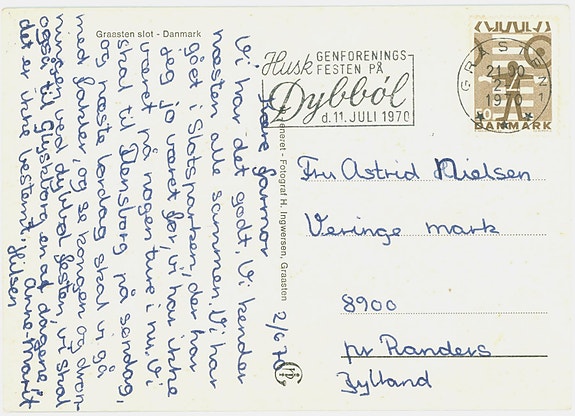 Graasten slot - Danmark
Husk GENFORENINGS-
FESTEN PÅ
Dybböl
d. 11. JULI 1970
GRÅSTEN 1
21.00
1970
DANMARK
2/6 70
Kære farmor
Vi har det godt. Vi kender
næsten alle sammen. Vi har
gået i Slotsparken, der har
jeg jo været før, vi har ikke
været på nogen ture i nu. Vi
skal til Flensborg på søndag,
og næste lørdag skal vi gå
med fakler, og se kongen og dron-
ningen ved dybbøl festen, vi skal
også til Glyksborg en af dagene,
det er ikke bestemt. Hilsen
Anne-Marit
eneret - Fotograf H. Ingwersen, Graasten
Fru Astrid Nielsen
Veringe mark
8900
pr Randers
Jylland